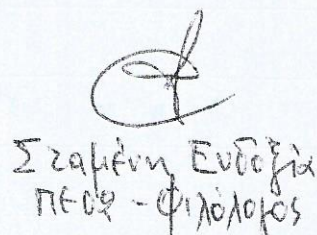 Σταμένη Ευδοξία
ΠΕ02 - Φιλόλογος